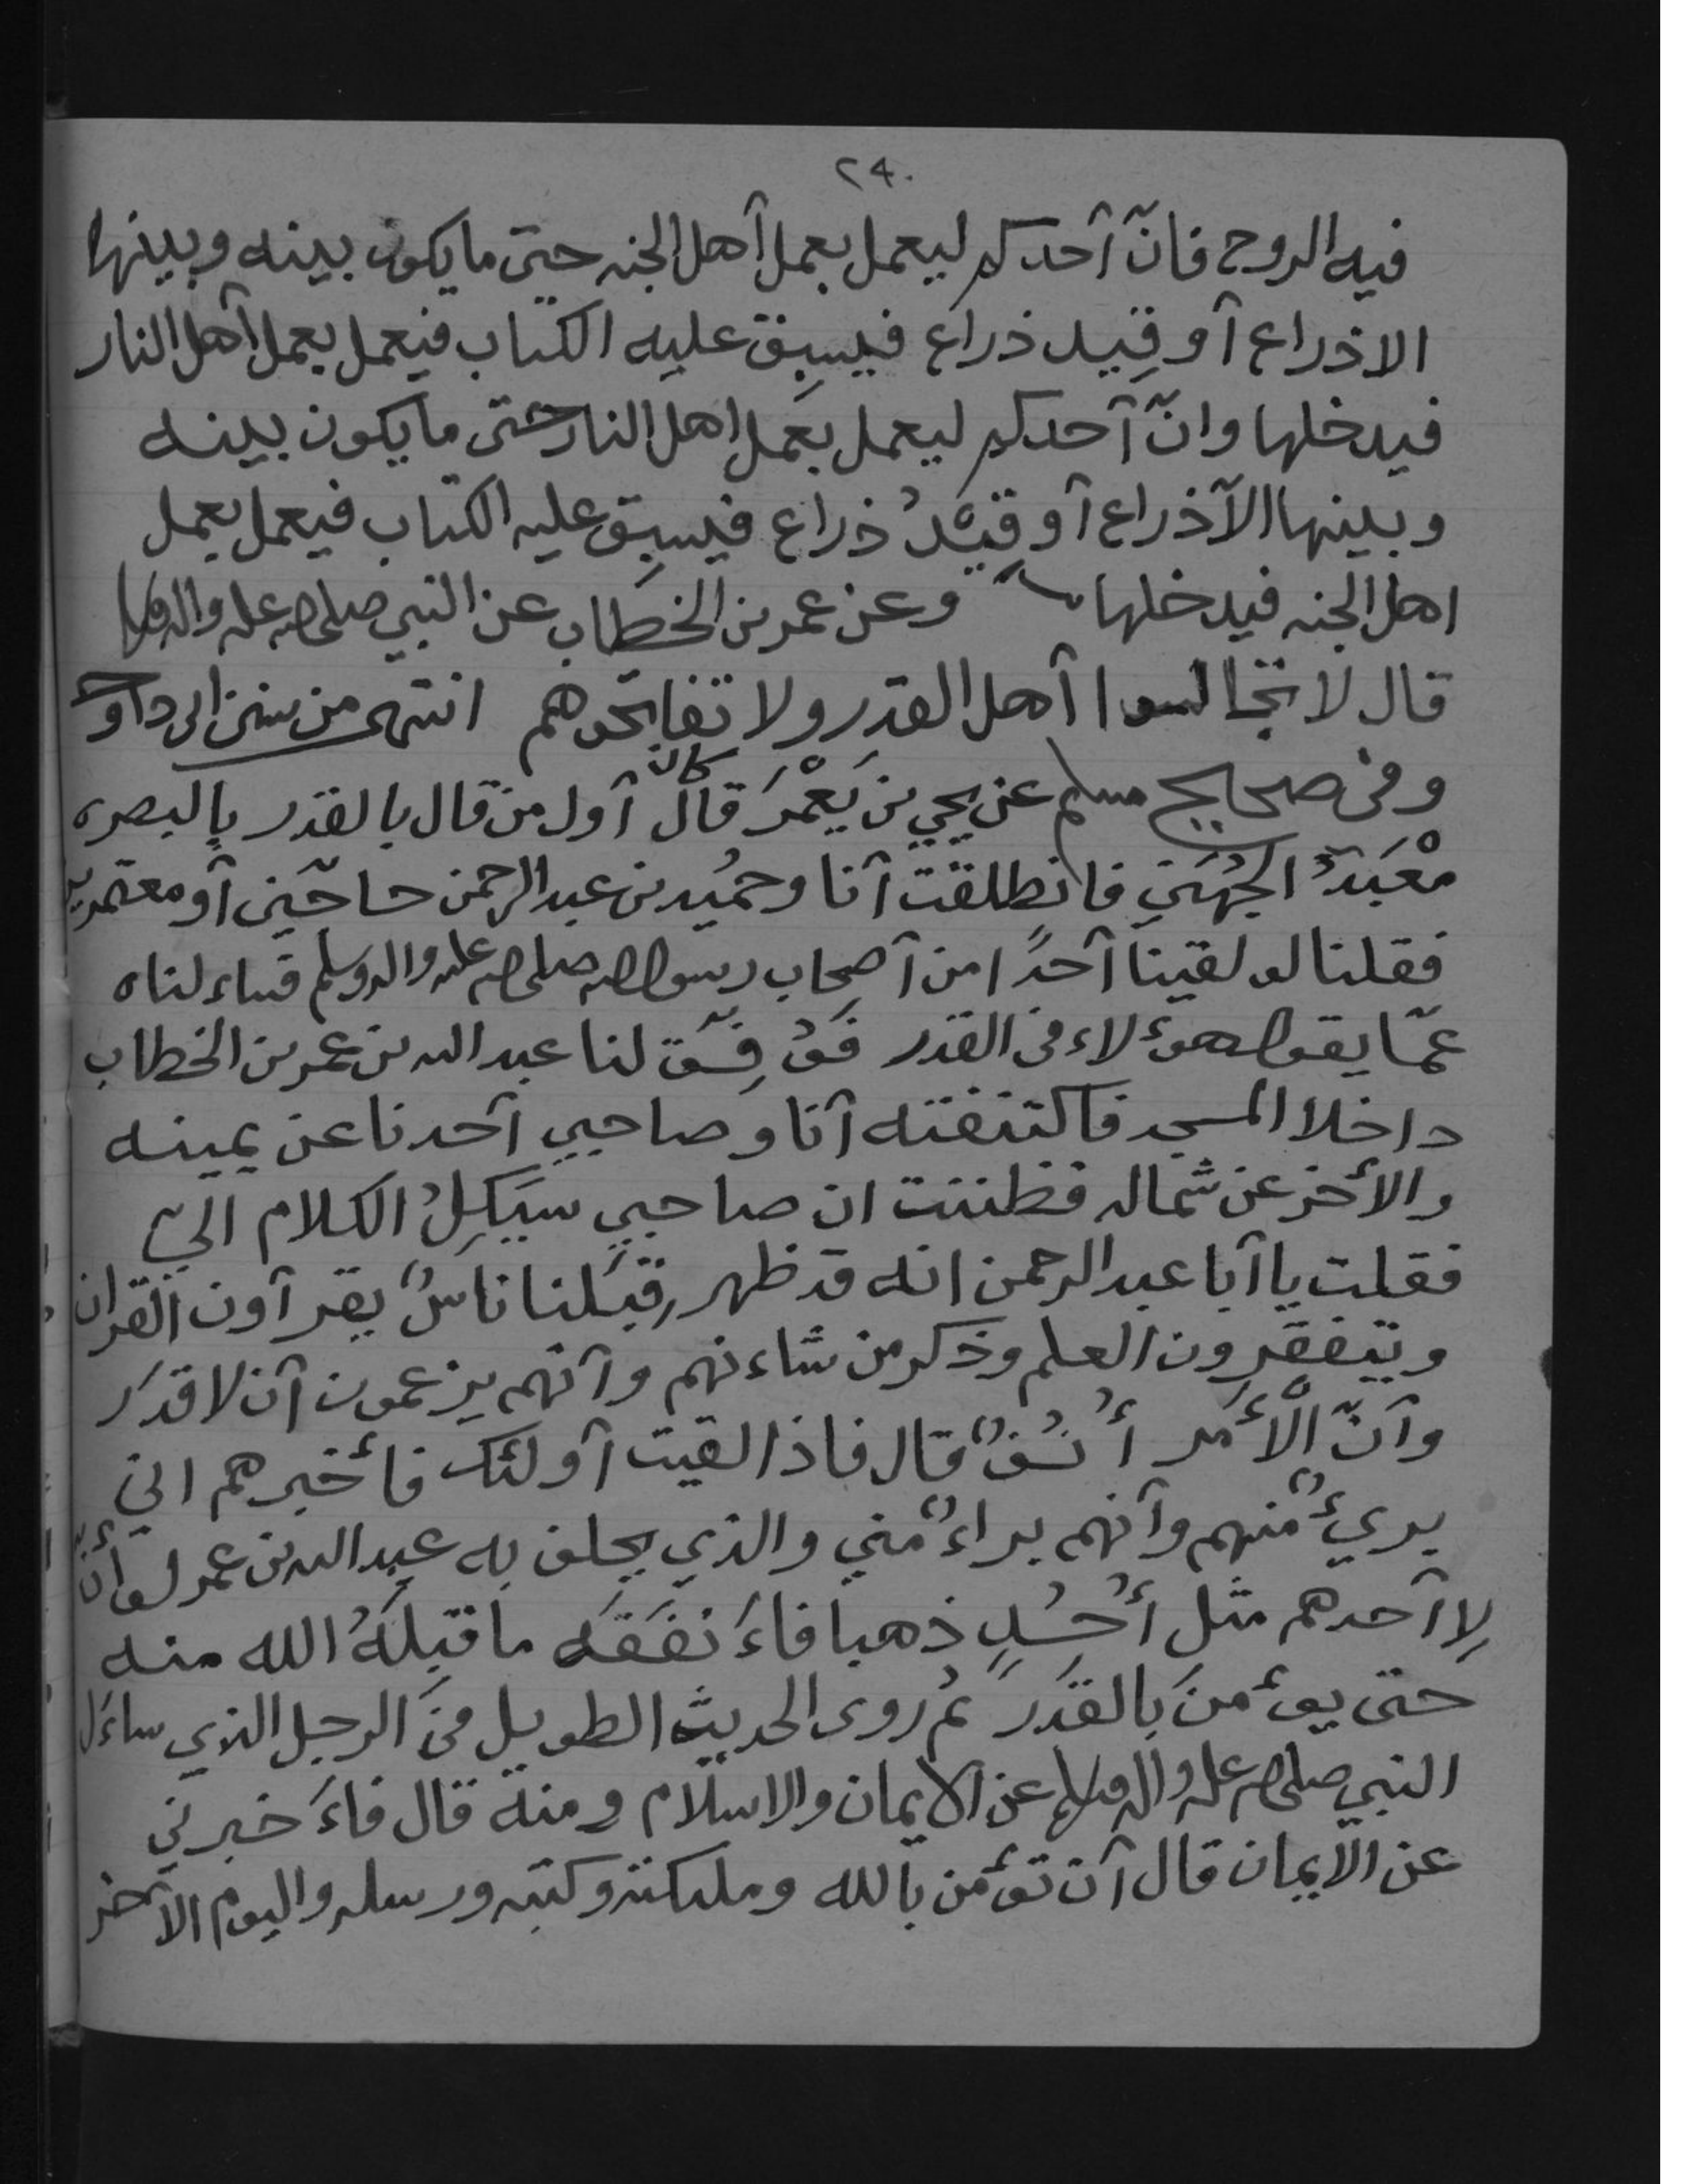 ٢٤٠
فيه الروح فانّ آحدكم ليعمل بعمل آهل الجنه حتى ما يكون بينه وبينها
الا ذراع آو قِيد ذراع فيسبق عليه الكتاب فيعمل بعمل آهل النار
فيدخلها وانّ آحدكم ليعمل بعمل اهل النار حتى ما يكون بينه
وبينها الاّ ذراع آو قِيْدُ ذراع فيسبق عليه الكتاب فيعمل بعمل
اهل الجنه فيدخلها وعن عمر بن الخطاب عن النبي صلى الله عليه واله وسلم
قال لا تجالسوا آهل القدر ولا تفاتحوهم انتهى من سنن ابى داود
وفى صحيح مسلم عن يحيي بن يَعْمَرَ قال كان آول من قال بالقدر بالبصره
مَعْبَدٌ الجُهَنِي فانطلقت آنا وحمُيد بن عبد الرحمن حاجّين آو معتمرين
فقلنا لو لقينا آحدًا من آصحاب رسول الله صلى الله عليه واله وسلم فساءلناه
عمّا يقول هوءلاء فى القدر فَوُفِّق لنا عبد الله بن عمر بن الخطاب
داخلا المسجد فاكتنفته آنا وصاحبي آحدنا عن يمينه
والأخر عن شماله فظننت ان صاحبي سيَكِلُ الكلام اليّ
فقلت يا آبا عبد الرحمن انه قد ظهر قِبَلنا ناسٌ يقرآون القران
ويتفقرون العلم وذكر من شاءنهم وآنهم يزعمون آن لا قدَر
وآنّ الأَمْر أُنُفٌ قال فاذا لقيت آولئك فأخبرهم اني
بريءٌ منهم وآنهم براءٌ مني والذي يحلف به عبد الله بن عمر لو أنّ
لِاآحدهم مثل أُحُدٍ ذهبا فاءَنفَقَه ما قبِلَهُ الله منه
حتى يوءمنَ بالقدَر ثم روى الحديث الطويل فى الرجل الذي ساءَل
النبي صلى الله عليه واله وسلم عن الايمان والاسلام ومنه قال فاءَخبرني
عن الايمان قال آن توءمن بالله وملىكته وكتبه ورسله واليوم الآخر